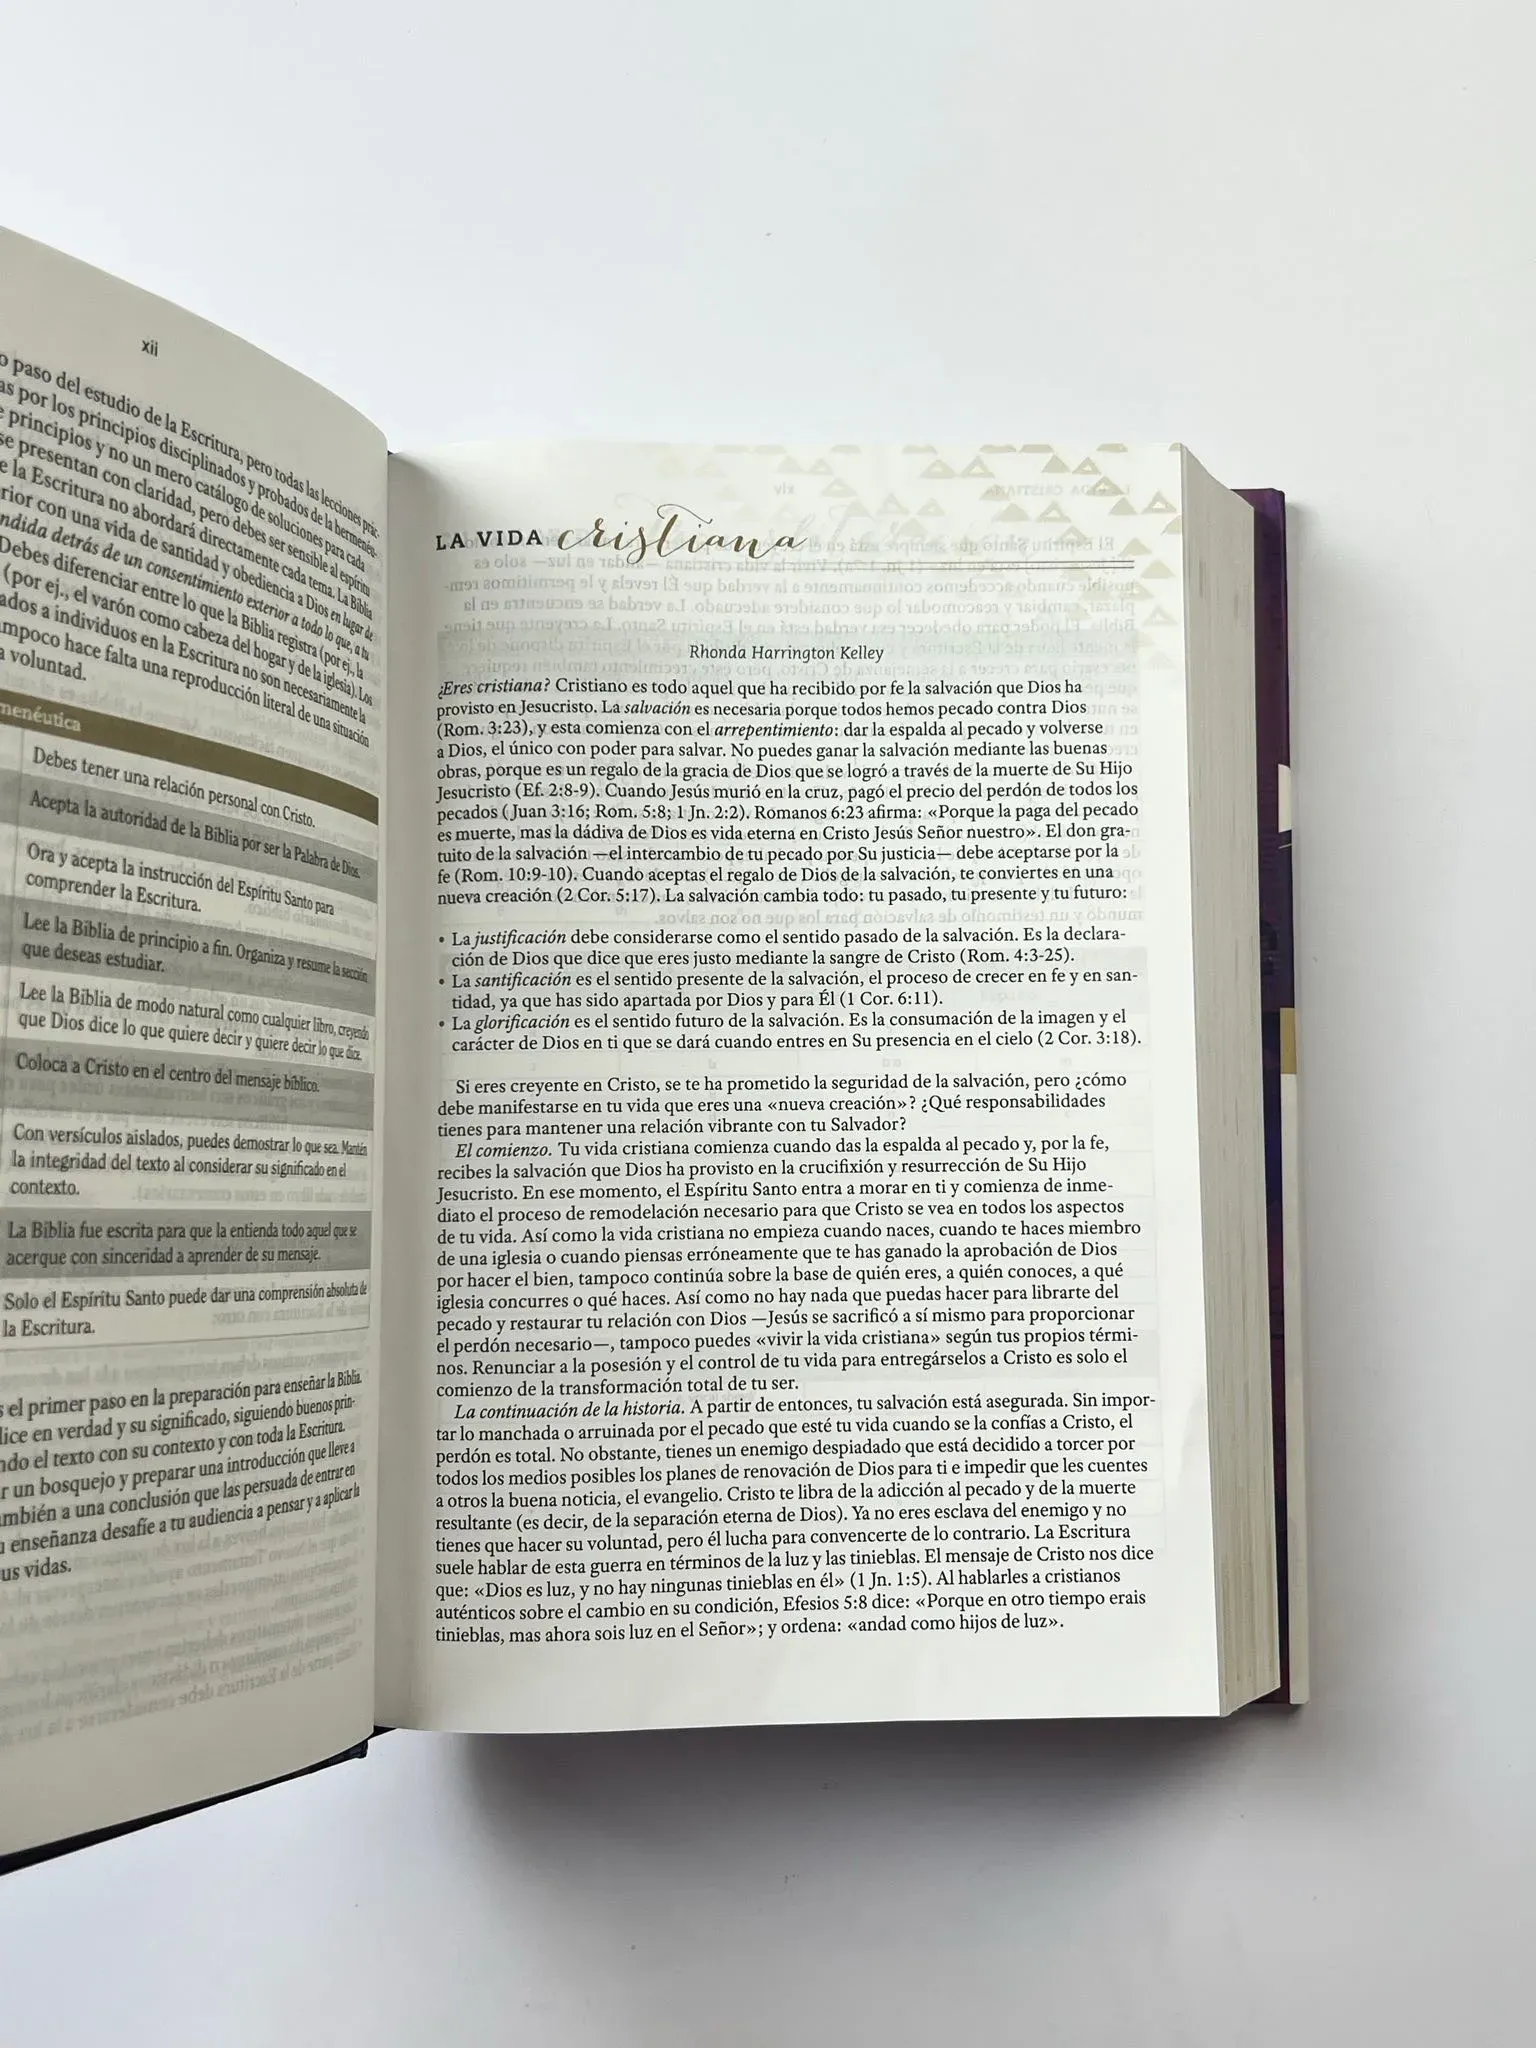 xii
paso del estudio de la Escritura, pero todas las lecciones prác-
as por los principios disciplinados y probados de la hermenéu-
principios y no un mero catálogo de soluciones para cada
se presentan con claridad, pero debes ser sensible al espíritu
e la Escritura no abordará directamente cada tema. La Biblia
rior con una vida de santidad y obediencia a Dios en lugar de
ndida detrás de un consentimiento exterior a todo lo que, a tu
Debes diferenciar entre lo que la Biblia registra (por ej., la
(por ej., el varón como cabeza del hogar y de la iglesia). Los
ados a individuos en la Escritura no son necesariamente la
ampoco hace falta una reproducción literal de una situación
a voluntad.
menéutica
Debes tener una relación personal con Cristo.
Acepta la autoridad de la Biblia por ser la Palabra de Dios.
Ora y acepta la instrucción del Espíritu Santo para
comprender la Escritura.
Lee la Biblia de principio a fin. Organiza y resume la sección
que deseas estudiar.
Lee la Biblia de modo natural como cualquier libro, creyendo
que Dios dice lo que quiere decir y quiere decir lo que dice.
Coloca a Cristo en el centro del mensaje bíblico.
Con versículos aislados, puedes demostrar lo que sea. Mantén
la integridad del texto al considerar su significado en el
contexto.
La Biblia fue escrita para que la entienda todo aquel que se
acerque con sinceridad a aprender de su mensaje.
Solo el Espíritu Santo puede dar una comprensión absoluta de
la Escritura.
s el primer paso en la preparación para enseñar la Biblia.
dice en verdad y su significado, siguiendo buenos prin-
ndo el texto con su contexto y con toda la Escritura.
r un bosquejo y preparar una introducción que lleve a
ambién a una conclusión que las persuada de entrar en
u enseñanza desafíe a tu audiencia a pensar y a aplicar la
us vidas.
LA VIDA cristiana
Rhonda Harrington Kelley
¿Eres cristiana? Cristiano es todo aquel que ha recibido por fe la salvación que Dios ha
provisto en Jesucristo. La salvación es necesaria porque todos hemos pecado contra Dios
(Rom. 3:23), y esta comienza con el arrepentimiento: dar la espalda al pecado y volverse
a Dios, el único con poder para salvar. No puedes ganar la salvación mediante las buenas
obras, porque es un regalo de la gracia de Dios que se logró a través de la muerte de Su Hijo
Jesucristo (Ef. 2:8-9). Cuando Jesús murió en la cruz, pagó el precio del perdón de todos los
pecados (Juan 3:16; Rom. 5:8; 1 Jn. 2:2). Romanos 6:23 afirma: «Porque la paga del pecado
es muerte, mas la dádiva de Dios es vida eterna en Cristo Jesús Señor nuestro». El don gra-
tuito de la salvación —el intercambio de tu pecado por Su justicia— debe aceptarse por la
fe (Rom. 10:9-10). Cuando aceptas el regalo de Dios de la salvación, te conviertes en una
nueva creación (2 Cor. 5:17). La salvación cambia todo: tu pasado, tu presente y tu futuro:
• La justificación debe considerarse como el sentido pasado de la salvación. Es la declara-
ción de Dios que dice que eres justo mediante la sangre de Cristo (Rom. 4:3-25).
• La santificación es el sentido presente de la salvación, el proceso de crecer en fe y en san-
tidad, ya que has sido apartada por Dios y para Él (1 Cor. 6:11).
• La glorificación es el sentido futuro de la salvación. Es la consumación de la imagen y el
carácter de Dios en ti que se dará cuando entres en Su presencia en el cielo (2 Cor. 3:18).
Si eres creyente en Cristo, se te ha prometido la seguridad de la salvación, pero ¿cómo
debe manifestarse en tu vida que eres una «nueva creación»? ¿Qué responsabilidades
tienes para mantener una relación vibrante con tu Salvador?
El comienzo. Tu vida cristiana comienza cuando das la espalda al pecado y, por la fe,
recibes la salvación que Dios ha provisto en la crucifixión y resurrección de Su Hijo
Jesucristo. En ese momento, el Espíritu Santo entra a morar en ti y comienza de inme-
diato el proceso de remodelación necesario para que Cristo se vea en todos los aspectos
de tu vida. Así como la vida cristiana no empieza cuando naces, cuando te haces miembro
de una iglesia o cuando piensas erróneamente que te has ganado la aprobación de Dios
por hacer el bien, tampoco continúa sobre la base de quién eres, a quién conoces, a qué
iglesia concurres o qué haces. Así como no hay nada que puedas hacer para librarte del
pecado y restaurar tu relación con Dios —Jesús se sacrificó a sí mismo para proporcionar
el perdón necesario—, tampoco puedes «vivir la vida cristiana» según tus propios térmi-
nos. Renunciar a la posesión y el control de tu vida para entregárselos a Cristo es solo el
comienzo de la transformación total de tu ser.
La continuación de la historia. A partir de entonces, tu salvación está asegurada. Sin impor-
tar lo manchada o arruinada por el pecado que esté tu vida cuando se la confías a Cristo, el
perdón es total. No obstante, tienes un enemigo despiadado que está decidido a torcer por
todos los medios posibles los planes de renovación de Dios para ti e impedir que les cuentes
a otros la buena noticia, el evangelio. Cristo te libra de la adicción al pecado y de la muerte
resultante (es decir, de la separación eterna de Dios). Ya no eres esclava del enemigo y no
tienes que hacer su voluntad, pero él lucha para convencerte de lo contrario. La Escritura
suele hablar de esta guerra en términos de la luz y las tinieblas. El mensaje de Cristo nos dice
que: «Dios es luz, y no hay ningunas tinieblas en él» (1 Jn. 1:5). Al hablarles a cristianos
auténticos sobre el cambio en su condición, Efesios 5:8 dice: «Porque en otro tiempo erais
tinieblas, mas ahora sois luz en el Señor»; y ordena: «andad como hijos de luz».